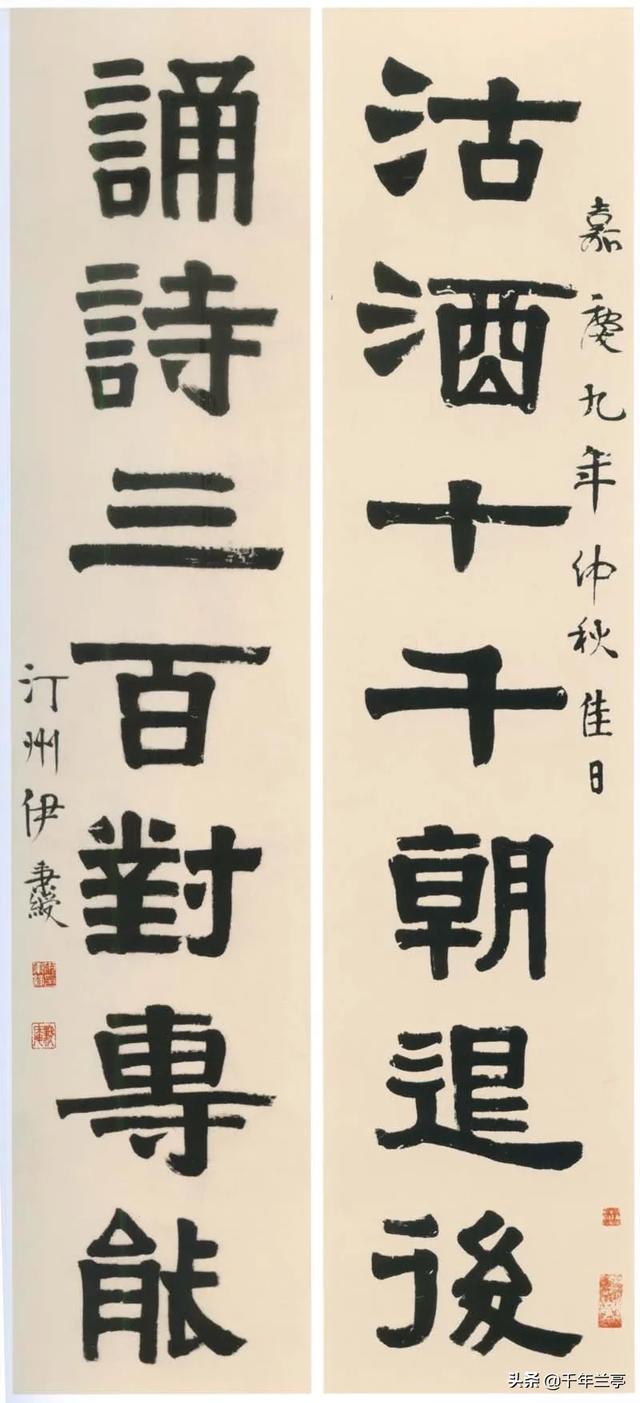 沽酒十千朝退後
嘉慶九年仲秋佳日
誦詩三百對專能
汀州伊秉綬
头条 @千年兰亭